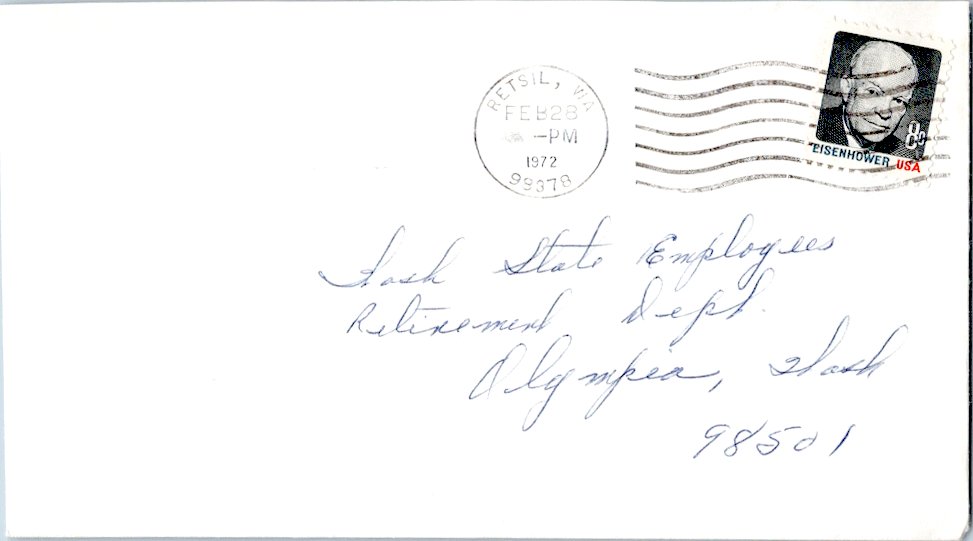 RETSIL, WA
FEB 28
-PM
1972
99378
8c
EISENHOWER USA
Wash State Employees
Retirement Dept.
Olympia, Wash
98501